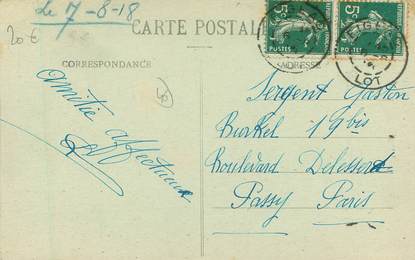 Le 7-8-18
20 €
CARTE POSTALE
5c
POSTES
5c
POSTES
LOT
CORRESPONDANCE
ADRESSE
amitié affectueuse
Sergent Gaston
Burkel 19 bis
Boulevard Delessert
Passy Paris